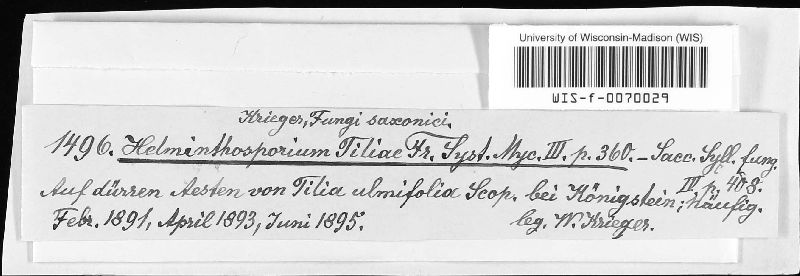 University of Wisconsin-Madison (WIS)
WIS-f-0070029
Krieger, Fungi saxonici.
1496. Helminthosporium Tiliae Fr. Syst. Myc. III. p. 360. – Sacc. Syll. fung.
IV. p. 408.
Auf dürren Aesten von Tilia ulmifolia Scop. bei Königstein; häufig.
Febr. 1891, April 1893, Juni 1895.
leg. W. Krieger.